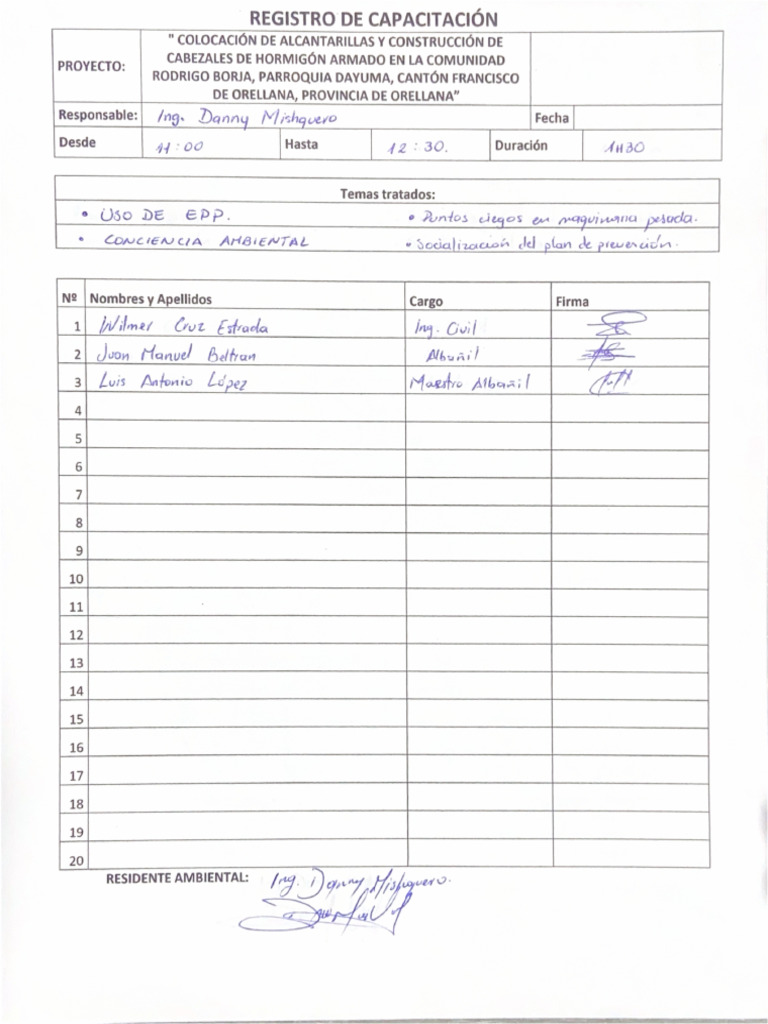 REGISTRO DE CAPACITACIÓN
PROYECTO:
" COLOCACIÓN DE ALCANTARILLAS Y CONSTRUCCIÓN DE
CABEZALES DE HORMIGÓN ARMADO EN LA COMUNIDAD
RODRIGO BORJA, PARROQUIA DAYUMA, CANTÓN FRANCISCO
DE ORELLANA, PROVINCIA DE ORELLANA"
Responsable: Ing. Danny Mishquero Fecha
Desde 11:00 Hasta 12:30. Duración 1H30
Temas tratados:
• USO DE EPP. • Puntos ciegos en maquinaria pesada.
• CONCIENCIA AMBIENTAL • Socialización del plan de prevención.
Nº Nombres y Apellidos Cargo Firma
1 Wilmer Cruz Estrada Ing. Civil
2 Juan Manuel Beltran Albañil
3 Luis Antonio López Maestro Albañil
4
5
6
7
8
9
10
11
12
13
14
15
16
17
18
19
20
RESIDENTE AMBIENTAL: Ing. Danny Mishquero.